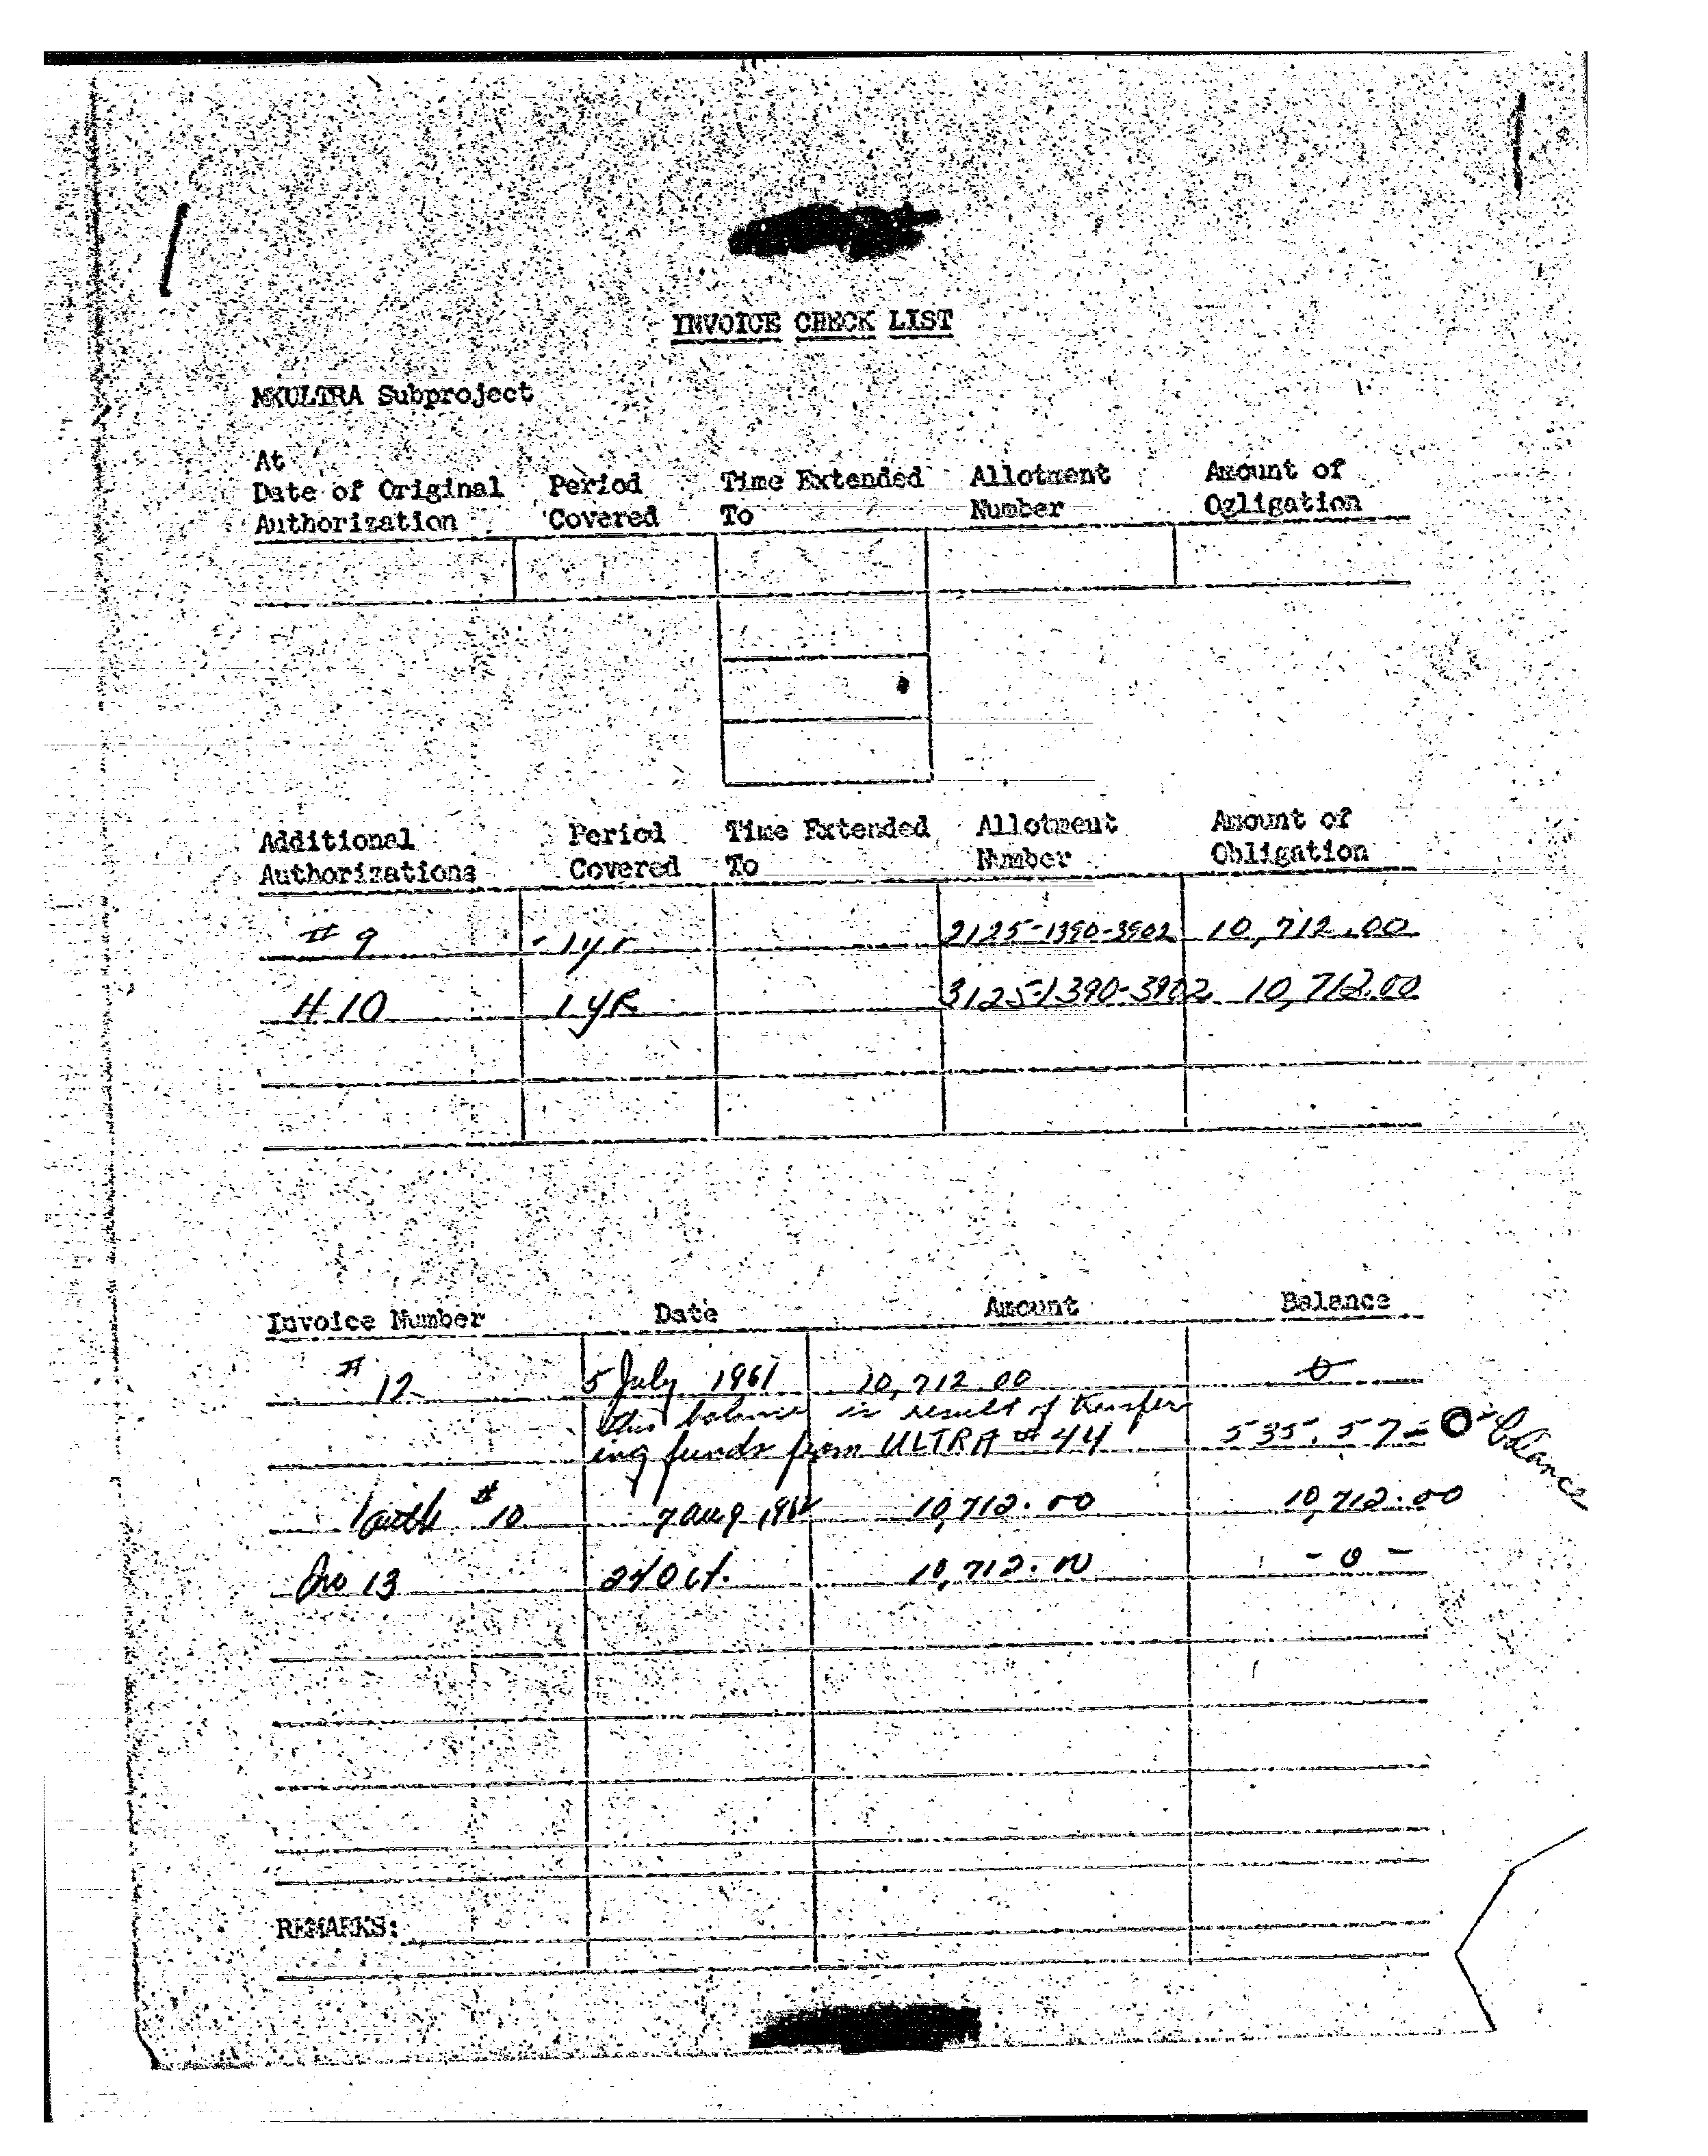 INVOICE CHECK LIST
MKULTRA Subproject
At
Date of Original Period Time Extended Allotment Amount of
Authorization Covered To Number Ogligation
Additional Period Time Extended Allotment Amount of
Authorizations Covered To Number Obligation
# 9 - 1 yr 2125-1390-3902 10,712.00
# 10 1 YR 3125-1390-3902 10,712.00
Invoice Number Date Amount Balance
# 12 5 July 1961 10,712.00 0
this balance is result of transfer
ing funds from ULTRA # 44 535.57 = 0 Balance
Auth # 10 7 Aug 10,712.00 10,712.00
Inv 13 24 Oct. 10,712.00 - 0 -
REMARKS: